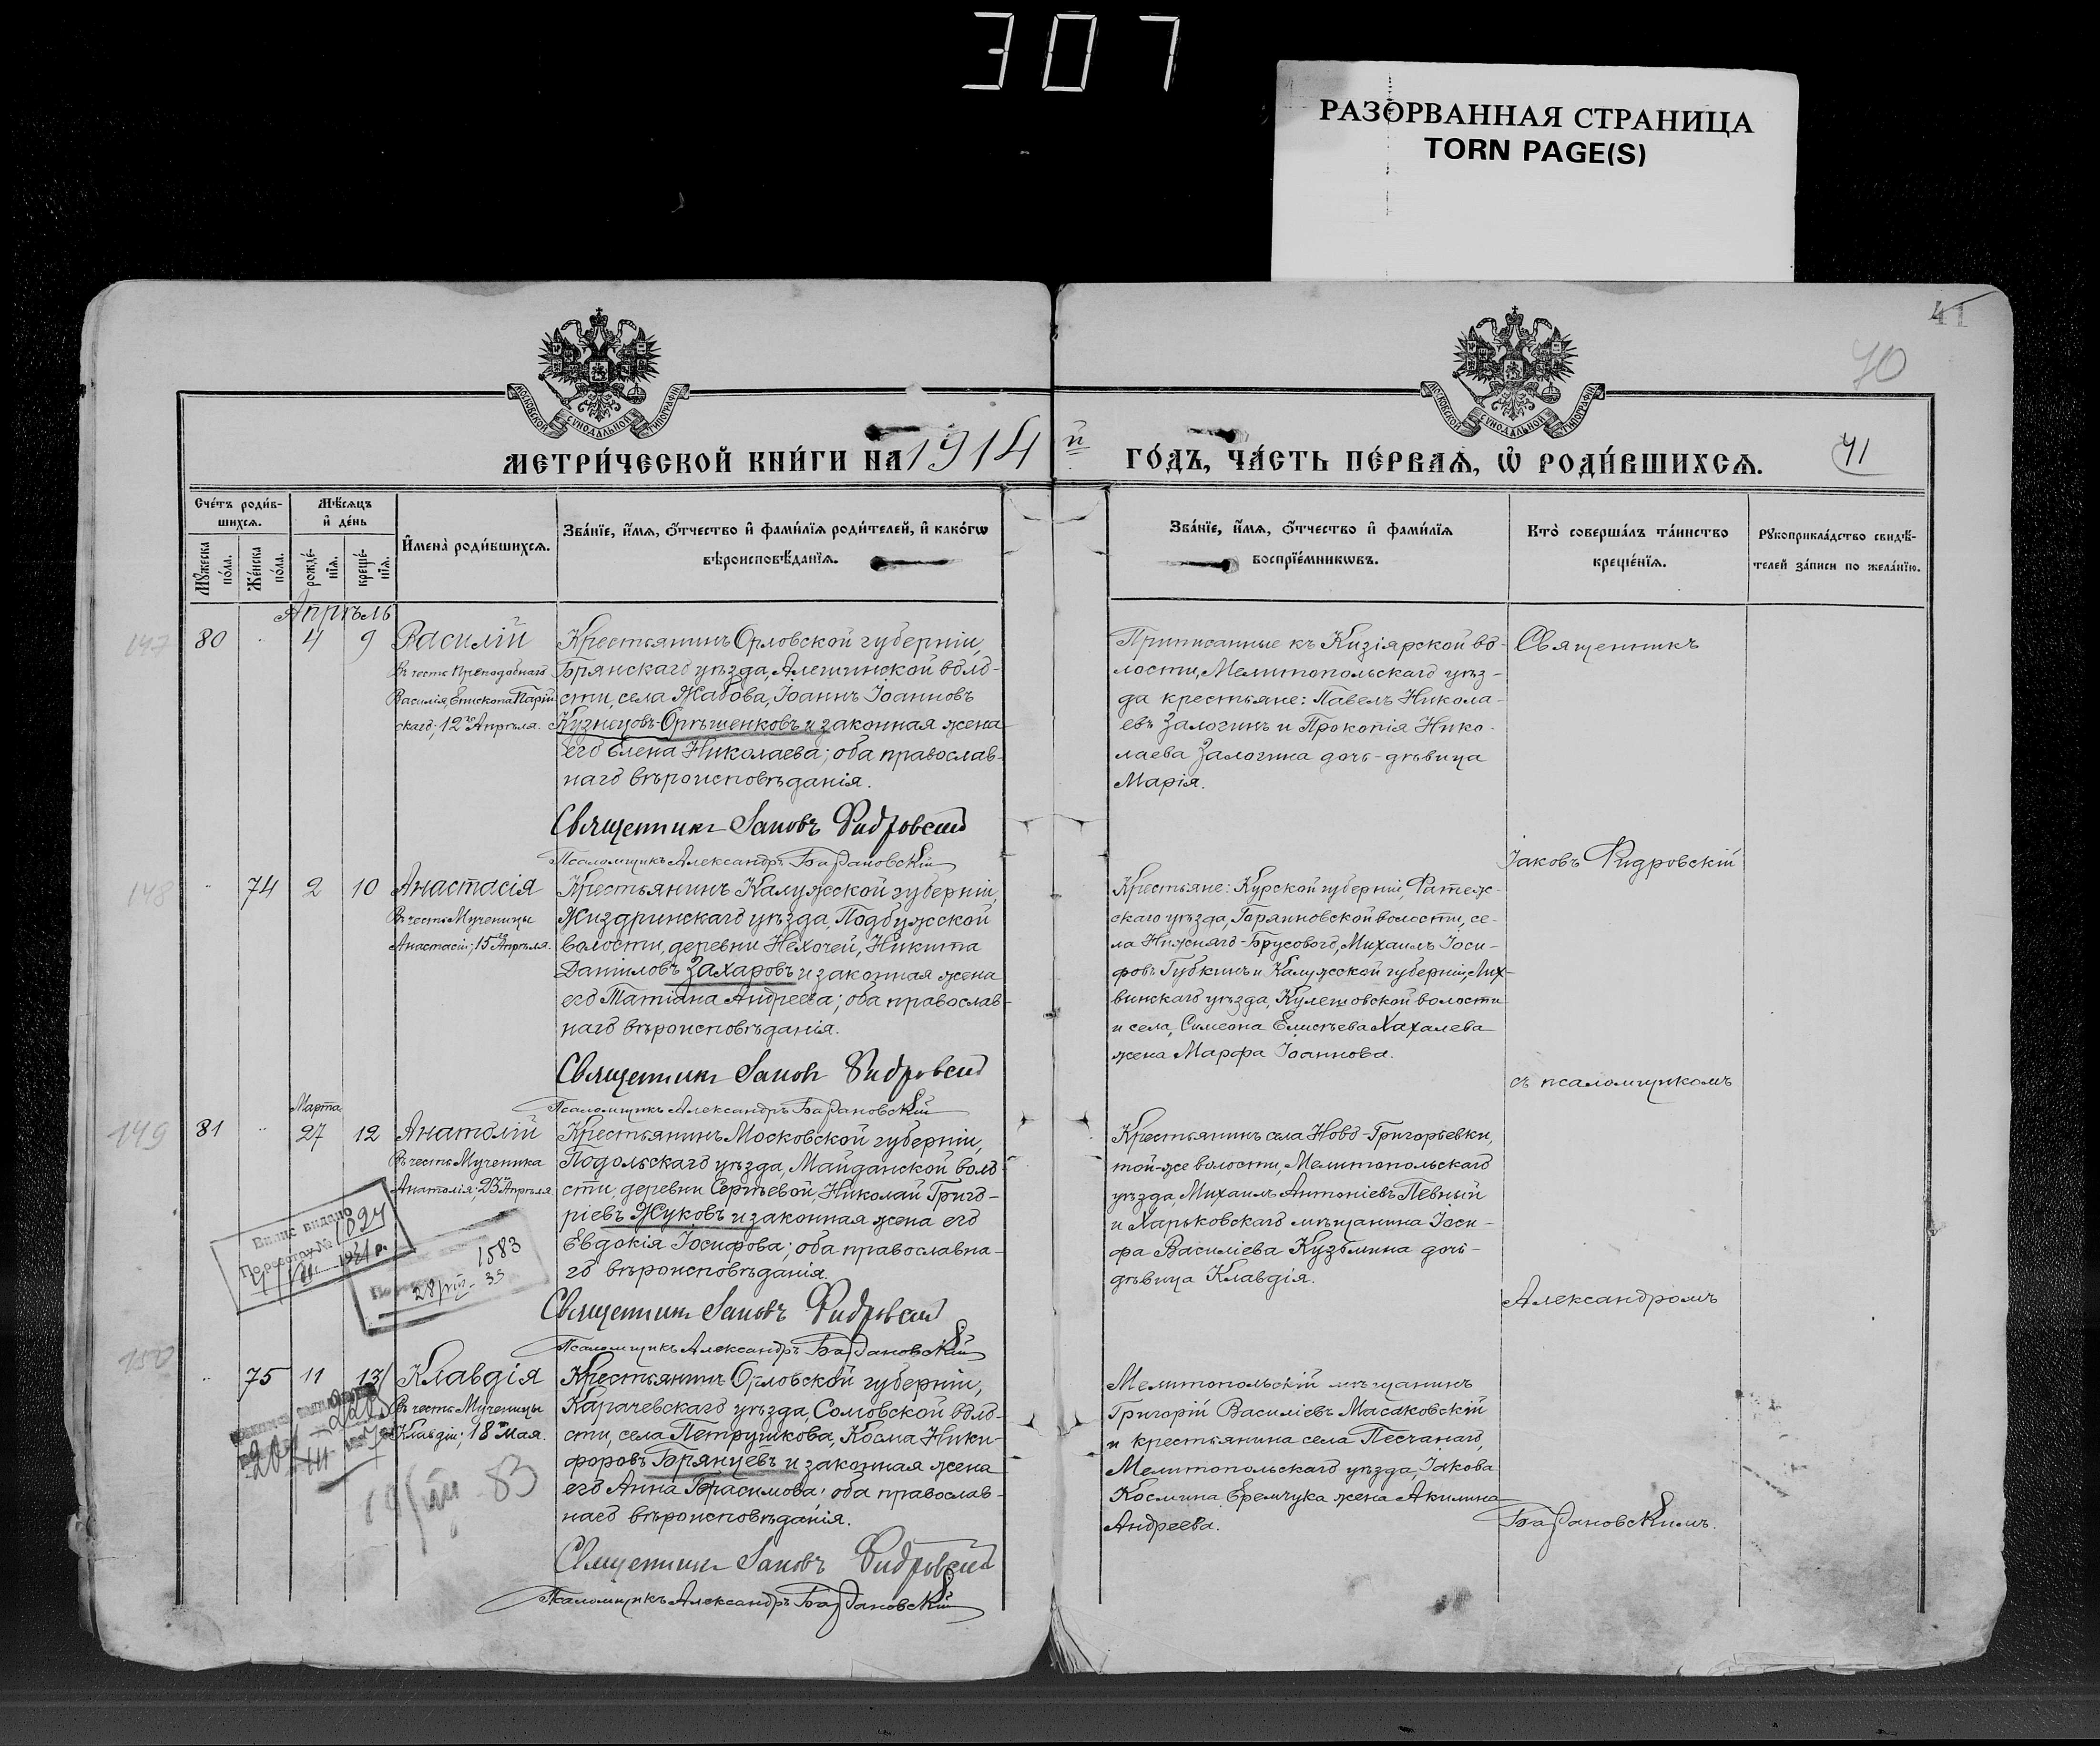 307
РАЗОРВАННАЯ СТРАНИЦА
TORN PAGE(S)
41
70
МОСКОВСКОЙ СѴНОДАЛЬНОЙ ТИПОГРАФІИ
МОСКОВСКОЙ СѴНОДАЛЬНОЙ ТИПОГРАФІИ
МЕТРИ́ЧЕСКОЙ КНИ́ГИ НА 1914 й ГО́ДЪ, ЧА́СТЬ ПЕ́РВАѦ, Ѡ҆ РОДИ́ВШИХСѦ.
41
Сче́тъ роди́в-
шихсѧ.
Мꙋ́жеска по́ла.
Же́нска по́ла.
Мѣ́сѧцъ
и҆ де́нь
рожде́-
нїѧ.
креще́-
нїѧ.
И҆мена̀ роди́вшихсѧ.
Зва́нїе, и҆́мѧ, ѻ҆́тчество и҆ фами́лїѧ роди́телей, и҆ како́гѡ
вѣроисповѣ́данїѧ.
Зва́нїе, и҆́мѧ, ѻ҆́тчество и҆ фами́лїѧ
воспрїе́мникѡвъ.
Кто̀ соверша́лъ та́инство
креще́нїѧ.
Рꙋкоприкла́дство свидѣ́-
телей за́писи по жела́нїю.
Апрѣль
147
80
4
9
Василій
Въ честь Преподобнаго
Василія, Епископа Парій-
скаго; 12го Апрѣля.
Крестьянинъ Орловской губерніи,
Брянскаго уѣзда, Алешинской воло-
сти, села Жабова, Іоаннъ Іоанновъ
Кузнецовъ-Орѣшенковъ и законная жена
его Елена Николаева; оба православ-
наго вѣроисповѣданія.
Священникъ Іаковъ Фидровскій
Псаломщикъ Александръ Бардановскій
Приписанные къ Кизіярской во-
лости, Мелитопольскаго уѣз-
да крестьяне: Павелъ Никола-
евъ Залогинъ и Прокопія Нико-
лаева Залогина дочь-дѣвица
Марія.
Священникъ
Іаковъ Фидровскій
148
74
2
10
Анастасія
Въ честь Мученицы
Анастасіи; 15го Апрѣля.
Крестьянинъ Калужской губерніи,
Жиздринскаго уѣзда, Подбужской
волости, деревни Нехочей, Никита
Даніиловъ Захаровъ и законная жена
его Татіана Андреева; оба православ-
наго вѣроисповѣданія.
Священникъ Іаковъ Фидровскій
Псаломщикъ Александръ Бардановскій
Крестьяне: Курской губерніи, Фатеж-
скаго уѣзда, Горяиновской волости, се-
ла Нижняго-Брусового, Михаилъ Іоси-
фовъ Губкинъ и Калужской губерніи, Лих-
винскаго уѣзда, Кулешовской волости
и села, Симеона Елисѣева Хахалева
жена Марфа Іоаннова.
съ псаломщикомъ
149
81
Марта
27
12
Анатолій
Въ честь Мученика
Анатолія; 23го Апрѣля
Крестьянинъ Московской губерніи,
Подольскаго уѣзда, Майданской воло-
сти, деревни Сергѣевой, Николай Григо-
ріевъ Жуковъ и законная жена его
Евдокія Іосифова; оба православна-
го вѣроисповѣданія.
Священникъ Іаковъ Фидровскій
Псаломщикъ Александръ Бардановскій
Крестьянинъ села Ново-Григорьевки,
той-же волости, Мелитопольскаго
уѣзда, Михаилъ Антоніевъ Певный
и Харьковскаго мѣщанина Іоси-
фа Василіева Кузьмина дочь-
дѣвица Клавдія.
Александромъ
Випис видано
1583
28/VIII - 33
150
75
11
13
Клавдія
Въ честь Мученицы
Клавдіи; 18го Мая.
Крестьянинъ Орловской губерніи,
Карачевскаго уѣзда, Сомовской воло-
сти, села Петрушкова, Косма Ники-
форовъ Брянцевъ и законная жена
его Анна Герасимова; оба православ-
наго вѣроисповѣданія.
Священникъ Іаковъ Фидровскій
Псаломщикъ Александръ Бардановскій
Мелитопольскій мѣщанинъ
Григорій Василіевъ Масаковскій
и крестьянина села Песчанаго,
Мелитопольскаго уѣзда, Іакова
Космина Еремчука жена Акилина
Андреева.
Бардановскимъ.